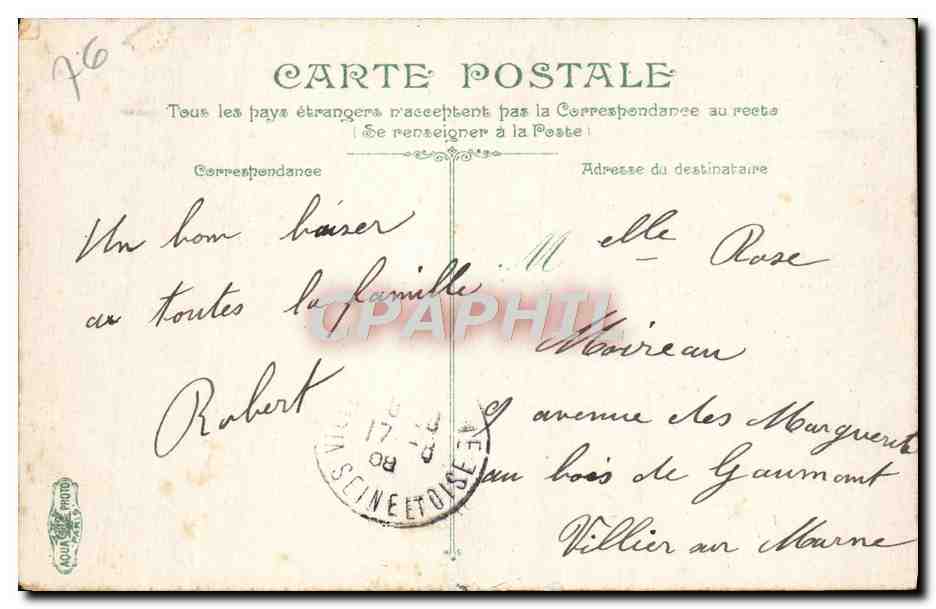 76
CARTE POSTALE
Tous les pays étrangers n'acceptent pas la Correspondance au recto
(Se renseigner à la Poste)
Correspondance
Adresse du destinataire
Un bon baiser
a toutes la famille
Robert
Melle Rose
Moireau
9 avenue des Marguerite
au bois de Gaumont
Villier sur Marne
SEINE ET OISE
17 -8
08
AQUA PHOTO
PARIS
CPAPHIL